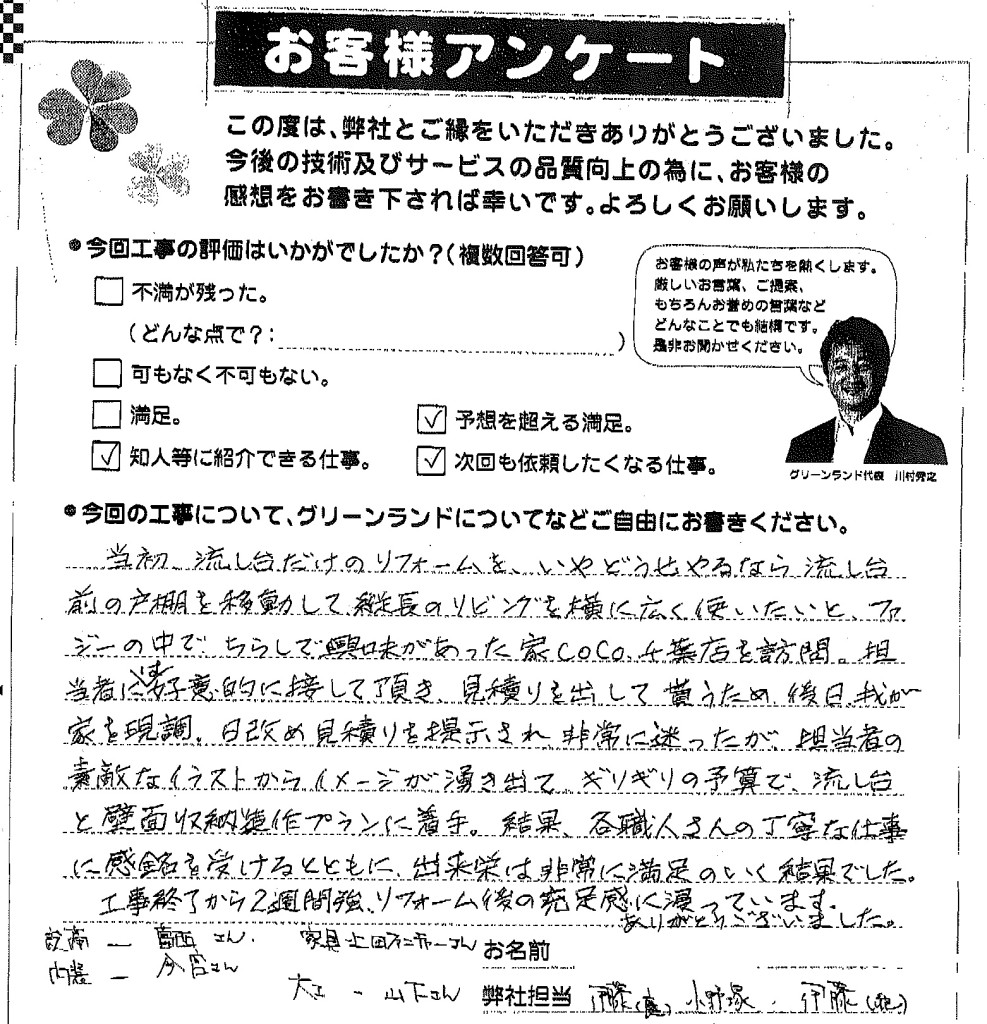 お客様アンケート
この度は、弊社とご縁をいただきありがとうございました。
今後の技術及びサービスの品質向上の為に、お客様の
感想をお書き下されば幸いです。よろしくお願いします。
●今回工事の評価はいかがでしたか？（複数回答可）
不満が残った。
（どんな点で？：　　　）
可もなく不可もない。
満足。
✓ 予想を超える満足。
✓ 知人等に紹介できる仕事。
✓ 次回も依頼したくなる仕事。
お客様の声が私たちを熱くします。
厳しいお言葉、ご提案、
もちろんお誉めの言葉など
どんなことでも結構です。
是非お聞かせください。
グリーンランド代表　川村
●今回の工事について、グリーンランドについてなどご自由にお書きください。
当初、流し台だけのリフォームを、いやどうせやるなら流し台
前の戸棚を移動して縦長のリビングを横に広く使いたいと、ファ
ジーの中で、ちらしで興味があった家CoCo.千葉店を訪問。担
当者には好意的に接して頂き、見積りを出して貰うため後日、我が
家を現調。日改め見積りを提示され、非常に迷ったが、担当者の
素敵なイラストからイメージが湧き出て、ギリギリの予算で、流し台
と壁面収納造作プランに着手。結果、各職人さんの丁寧な仕事
に感銘を受けるとともに、出来栄は非常に満足のいく結果でした。
工事終了から2週間強、リフォーム後の充足感に浸っています。
ありがとうございました。
設備 ー 葛西さん.
内装 ー 今宮さん
大工 ー 山下さん
お名前
弊社担当 伊藤 小野塚・伊藤